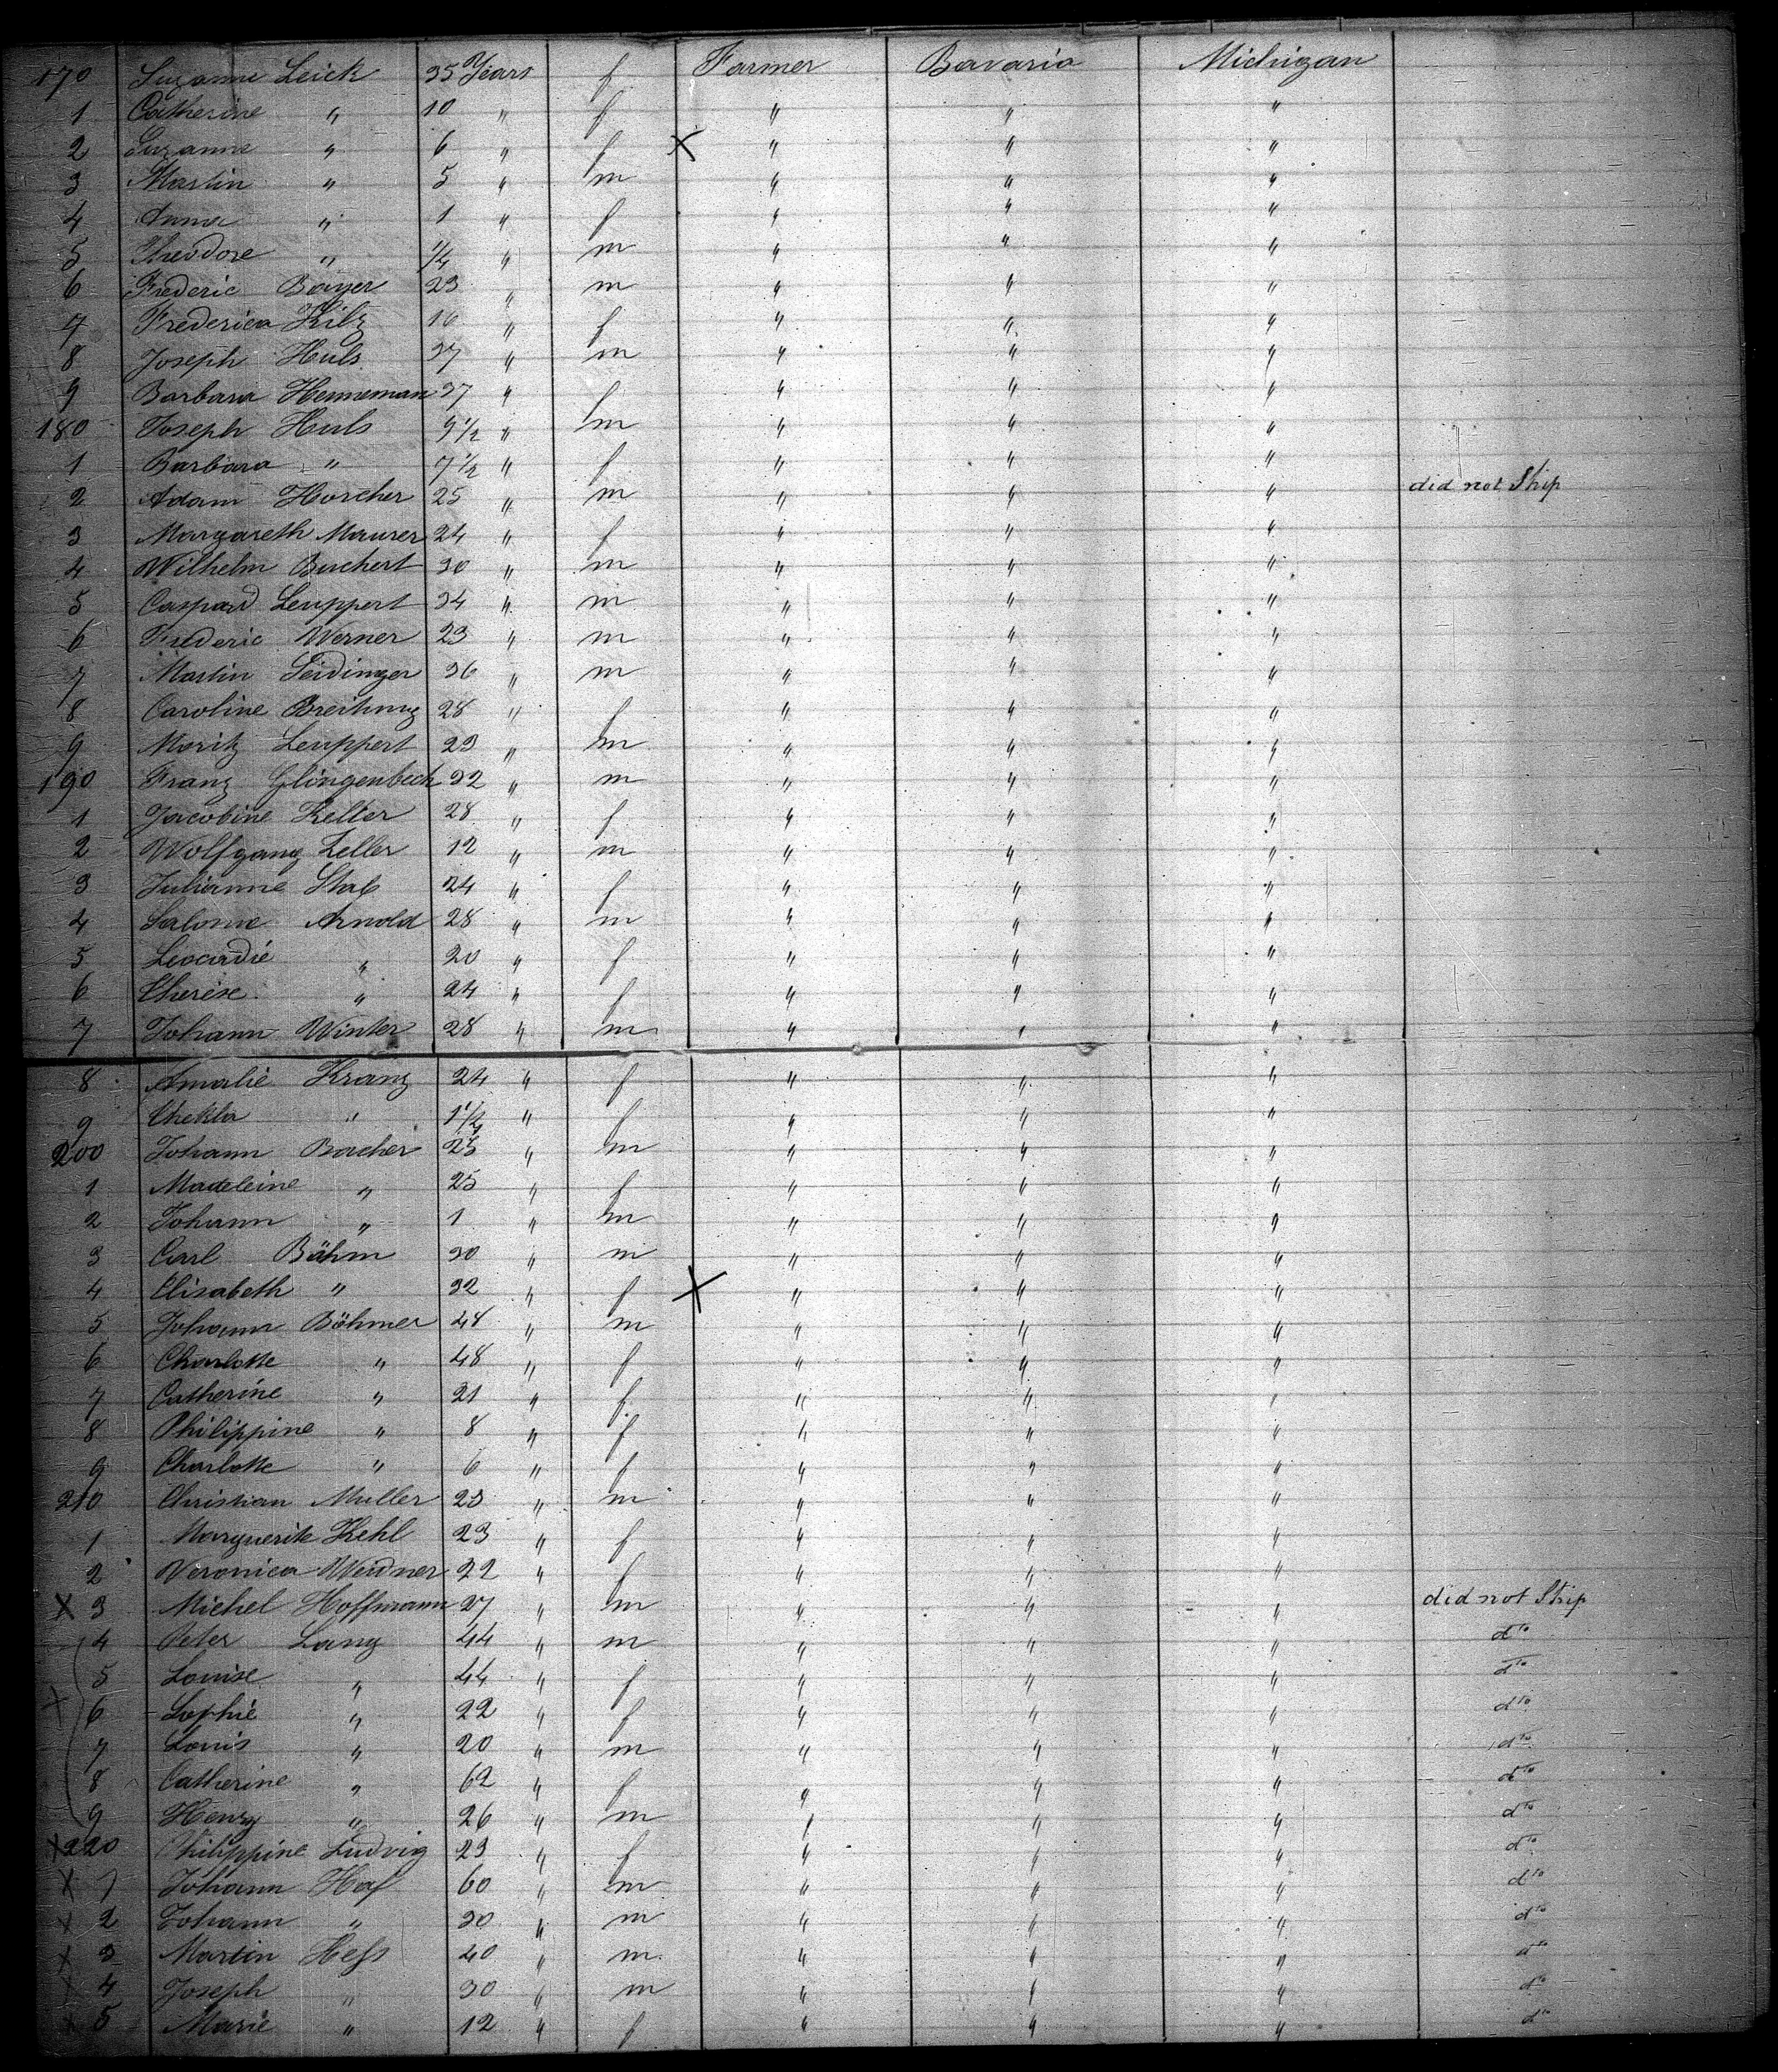 170 Suzanne Leick 35 Years f Farmer Bavaria Michigan
1 Catherine " 10 " f " " "
2 Suzanne " 6 " f X " " "
3 Martin " 5 " m " " "
4 Anna " 1 " f " " "
5 Theodore " 1/4 " m " " "
6 Frederic Bayer 23 " m " " "
7 Frederica Kilz 16 " f " " "
8 Joseph Huls 37 " m " " "
9 Barbara Henneman 37 " f " " "
180 Joseph Huls 9 1/2 " m " " "
1 Barbara " 7 1/2 " f " " "
2 Adam Horcher 25 " m " " " did not Ship
3 Margareth Maurer 24 " f " " "
4 Wilhelm Buchert 30 " m " " "
5 Caspard Leuppert 34 " m " " "
6 Frederic Werner 23 " m " " "
7 Martin Seidinger 36 " m " " "
8 Caroline Breitung 28 " f " " "
9 Moritz Leuppert 23 " m " " "
190 Franz Glingenbeck 32 " m " " "
1 Jacobine Keller 28 " f " " "
2 Wolfgang Zeller 12 " m " " "
3 Julianne Stab 24 " f " " "
4 Salome Arnold 28 " m " " "
5 Leocadie " 20 " f " " "
6 Therese " 24 " f " " "
7 Johann Winter 28 " m " " "
8 Amalie Kranz 24 " f " " "
9 Thekla " 1 1/2 " f " " "
200 Johann Bacher 25 " m " " "
1 Madeleine " 25 " f " " "
2 Johann " 1 " m " " "
3 Carl Böhm 30 " m " " "
4 Elisabeth " 32 " f X " " "
5 Johann Böhmer 48 " m " " "
6 Charlotte " 48 " f " " "
7 Catherine " 21 " f " " "
8 Philippine " 8 " f " " "
9 Charlotte " 6 " f " " "
210 Christian Muller 23 " m " " "
1 Marguerite Kehl 23 " f " " "
2 Veronica Weidner 22 " f " " "
X 3 Michel Hoffmann 27 " m " " " did not Ship
4 Peter Lang 44 " m " " " dto
5 Louise " 44 " f " " " dto
X 6 Sophie " 22 " f " " " dto
7 Louis " 20 " m " " " dto
8 Catherine " 62 " f " " " dto
9 Henry " 26 " m " " " dto
X 220 Philippine Ludvig 23 " f " " " dto
X 1 Johann Haf 60 " m " " " dto
X 2 Johann " 30 " m " " " dto
X 3 Martin Hess 40 " m " " " dto
X 4 Joseph " 30 " m " " " dto
X 5 Marie " 12 " f " " " dto